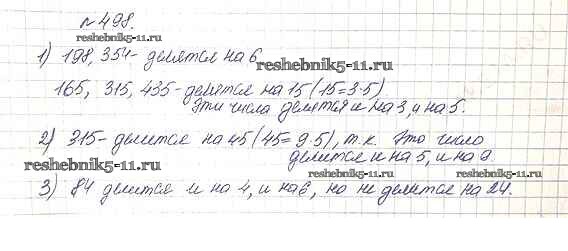 №498.
reshebnik5-11.ru
1) 198, 354- делятся на 6
reshebnik5-11.ru
165, 315, 435- делятся на 15 (15=3·5)
Эти числа делятся и на 3, и на 5.
reshebnik5-11.ru
2) 315- делится на 45 (45=9·5), т.к. это число
делится и на 5, и на 9.
reshebnik5-11.ru
reshebnik5-11.ru
reshebnik5-11.ru
3) 84 делится и на 4, и на 6, но не делится на 24.